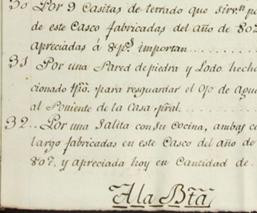 30 Por 9 Casitas de terrado que sirvⁿ pa
de este Casco fabricadas del año de 807
apreciadas á 8 pˢ importan
31 Por una Pared de piedra y Lodo hecho
cionado Rio. para resguardar el Ojo de agua
al Poniente de la Casa pral.
32.. Por una Salita con Su Cocina, ambas co
largo fabricadas en este Casco del año de
807. y apreciada hoy en Cantidad de
A la Bta